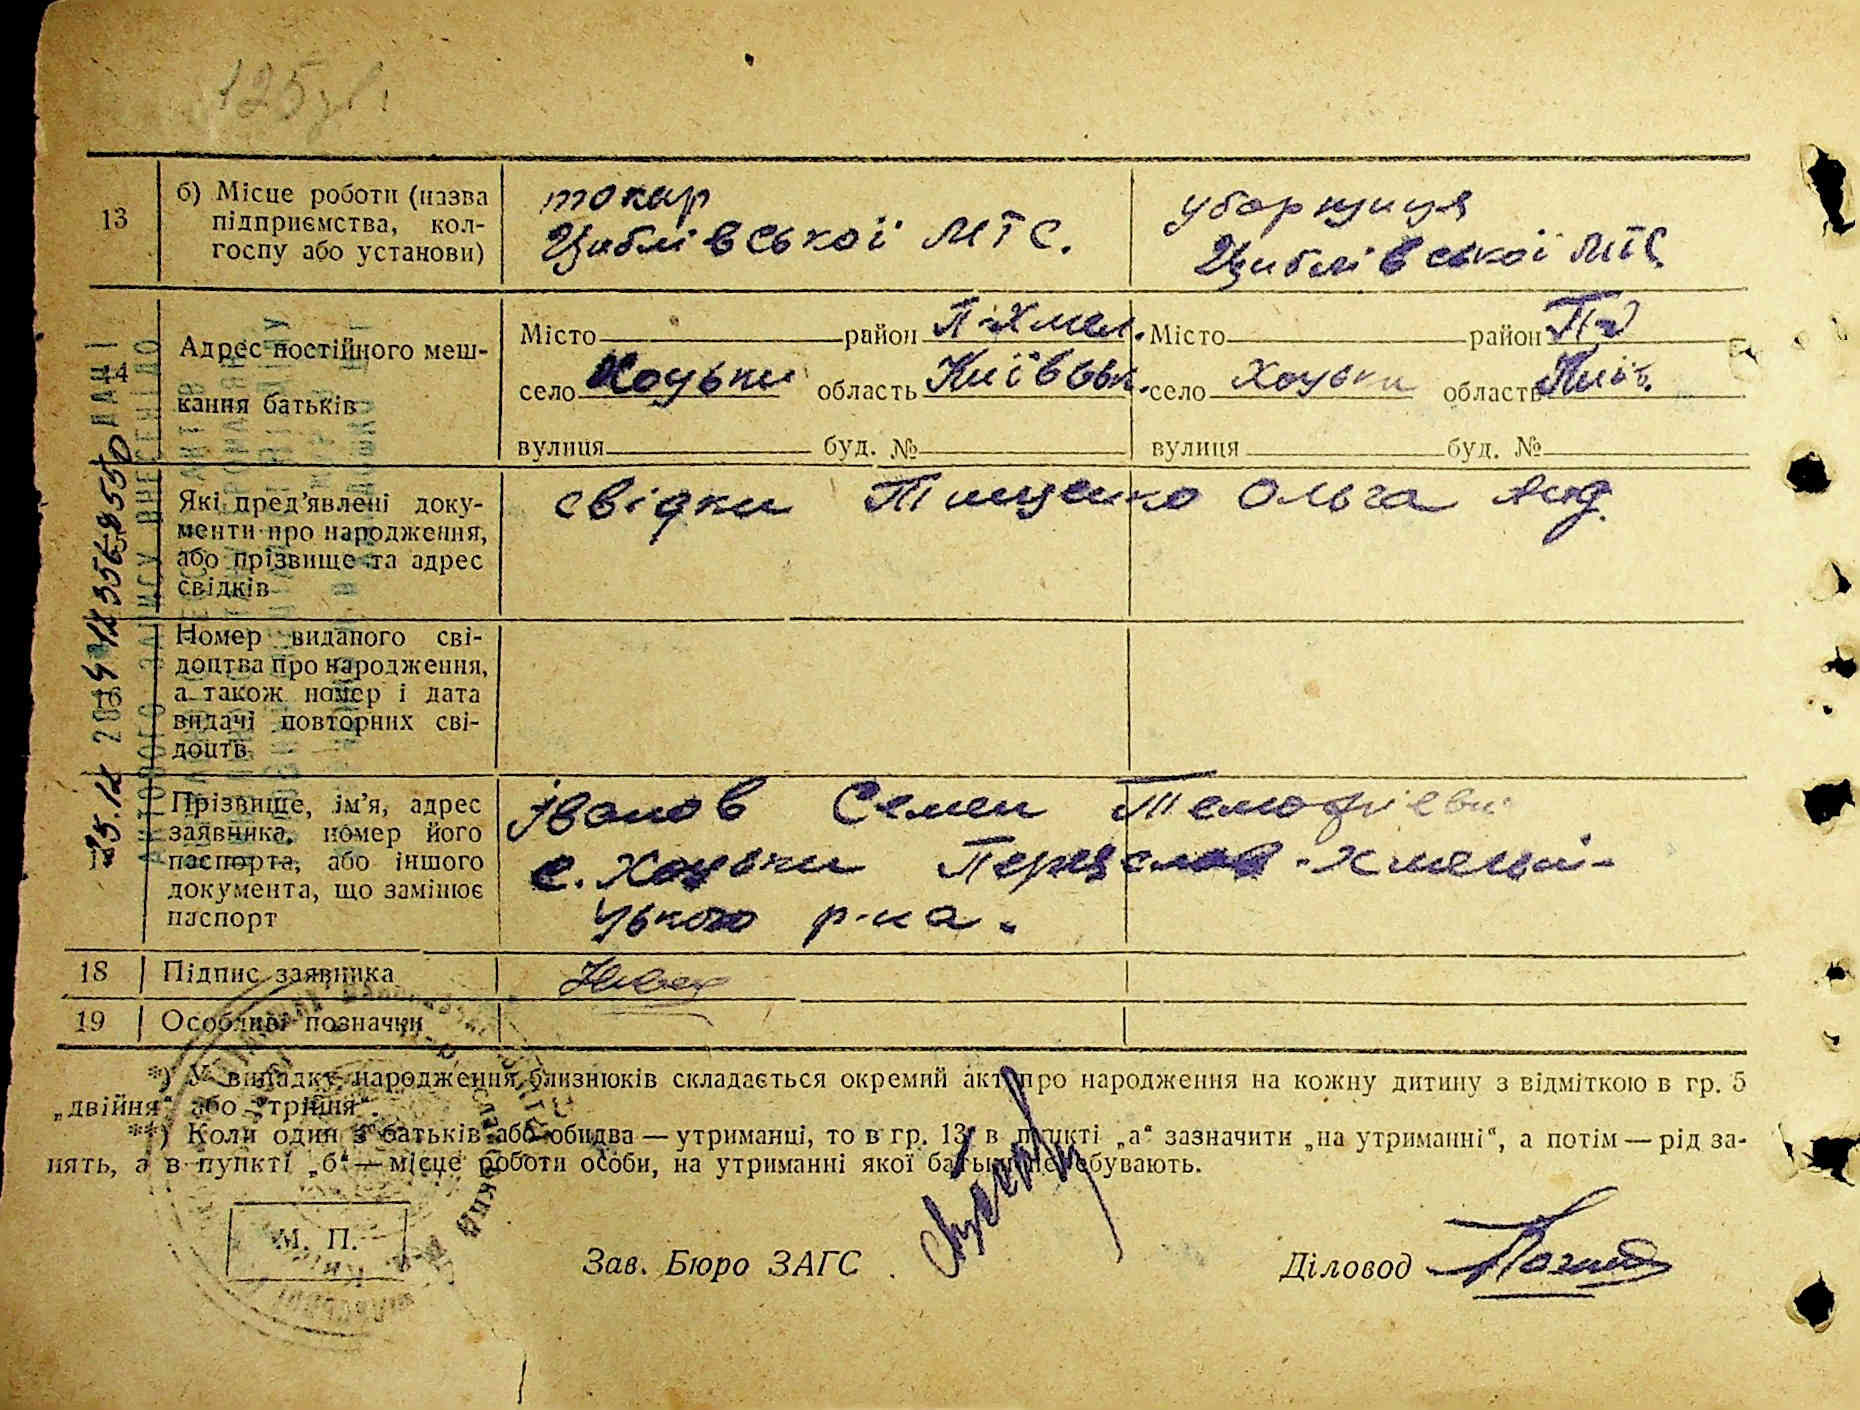 125
13
б) Місце роботи (назва
підприємства, кол-
госпу або установи)
токар
Циблівської МТС.
уборщиця
Циблівської МТС
14
Адрес постійного меш-
кання батьків
Місто район П-Хмел.
село Хоцьки область Київськ.
вулиця буд. №
Місто район П-
село Хоцьки область Київ.
вулиця буд. №
Які пред’явлені доку-
менти про народження,
або прізвище та адрес
свідків
свідки Тищенко Ольга Анд.
Номер виданого сві-
доцтва про народження,
а також номер і дата
видачі повторних сві-
доцтв
Прізвище, ім’я, адрес
заявника, номер його
паспорта, або іншого
документа, що замінює
паспорт
Іванов Семен Темофієви
с. Хоцьки Переяслав-Хмельни-
цького р-на.
18 Підпис заявника
19 Особливі позначки
*) У випадку народження близнюків складається окремий акт про народження на кожну дитину з відміткою в гр. 5
„двійня“ або „трійня“.
**) Коли один з батьків або обидва — утриманці, то в гр. 13 в пункті „а“ зазначити „на утриманні“, а потім — рід за-
нять, а в пункті „б“ — місце роботи особи, на утриманні якої батьки перебувають.
М. П.
Зав. Бюро ЗАГС
Діловод